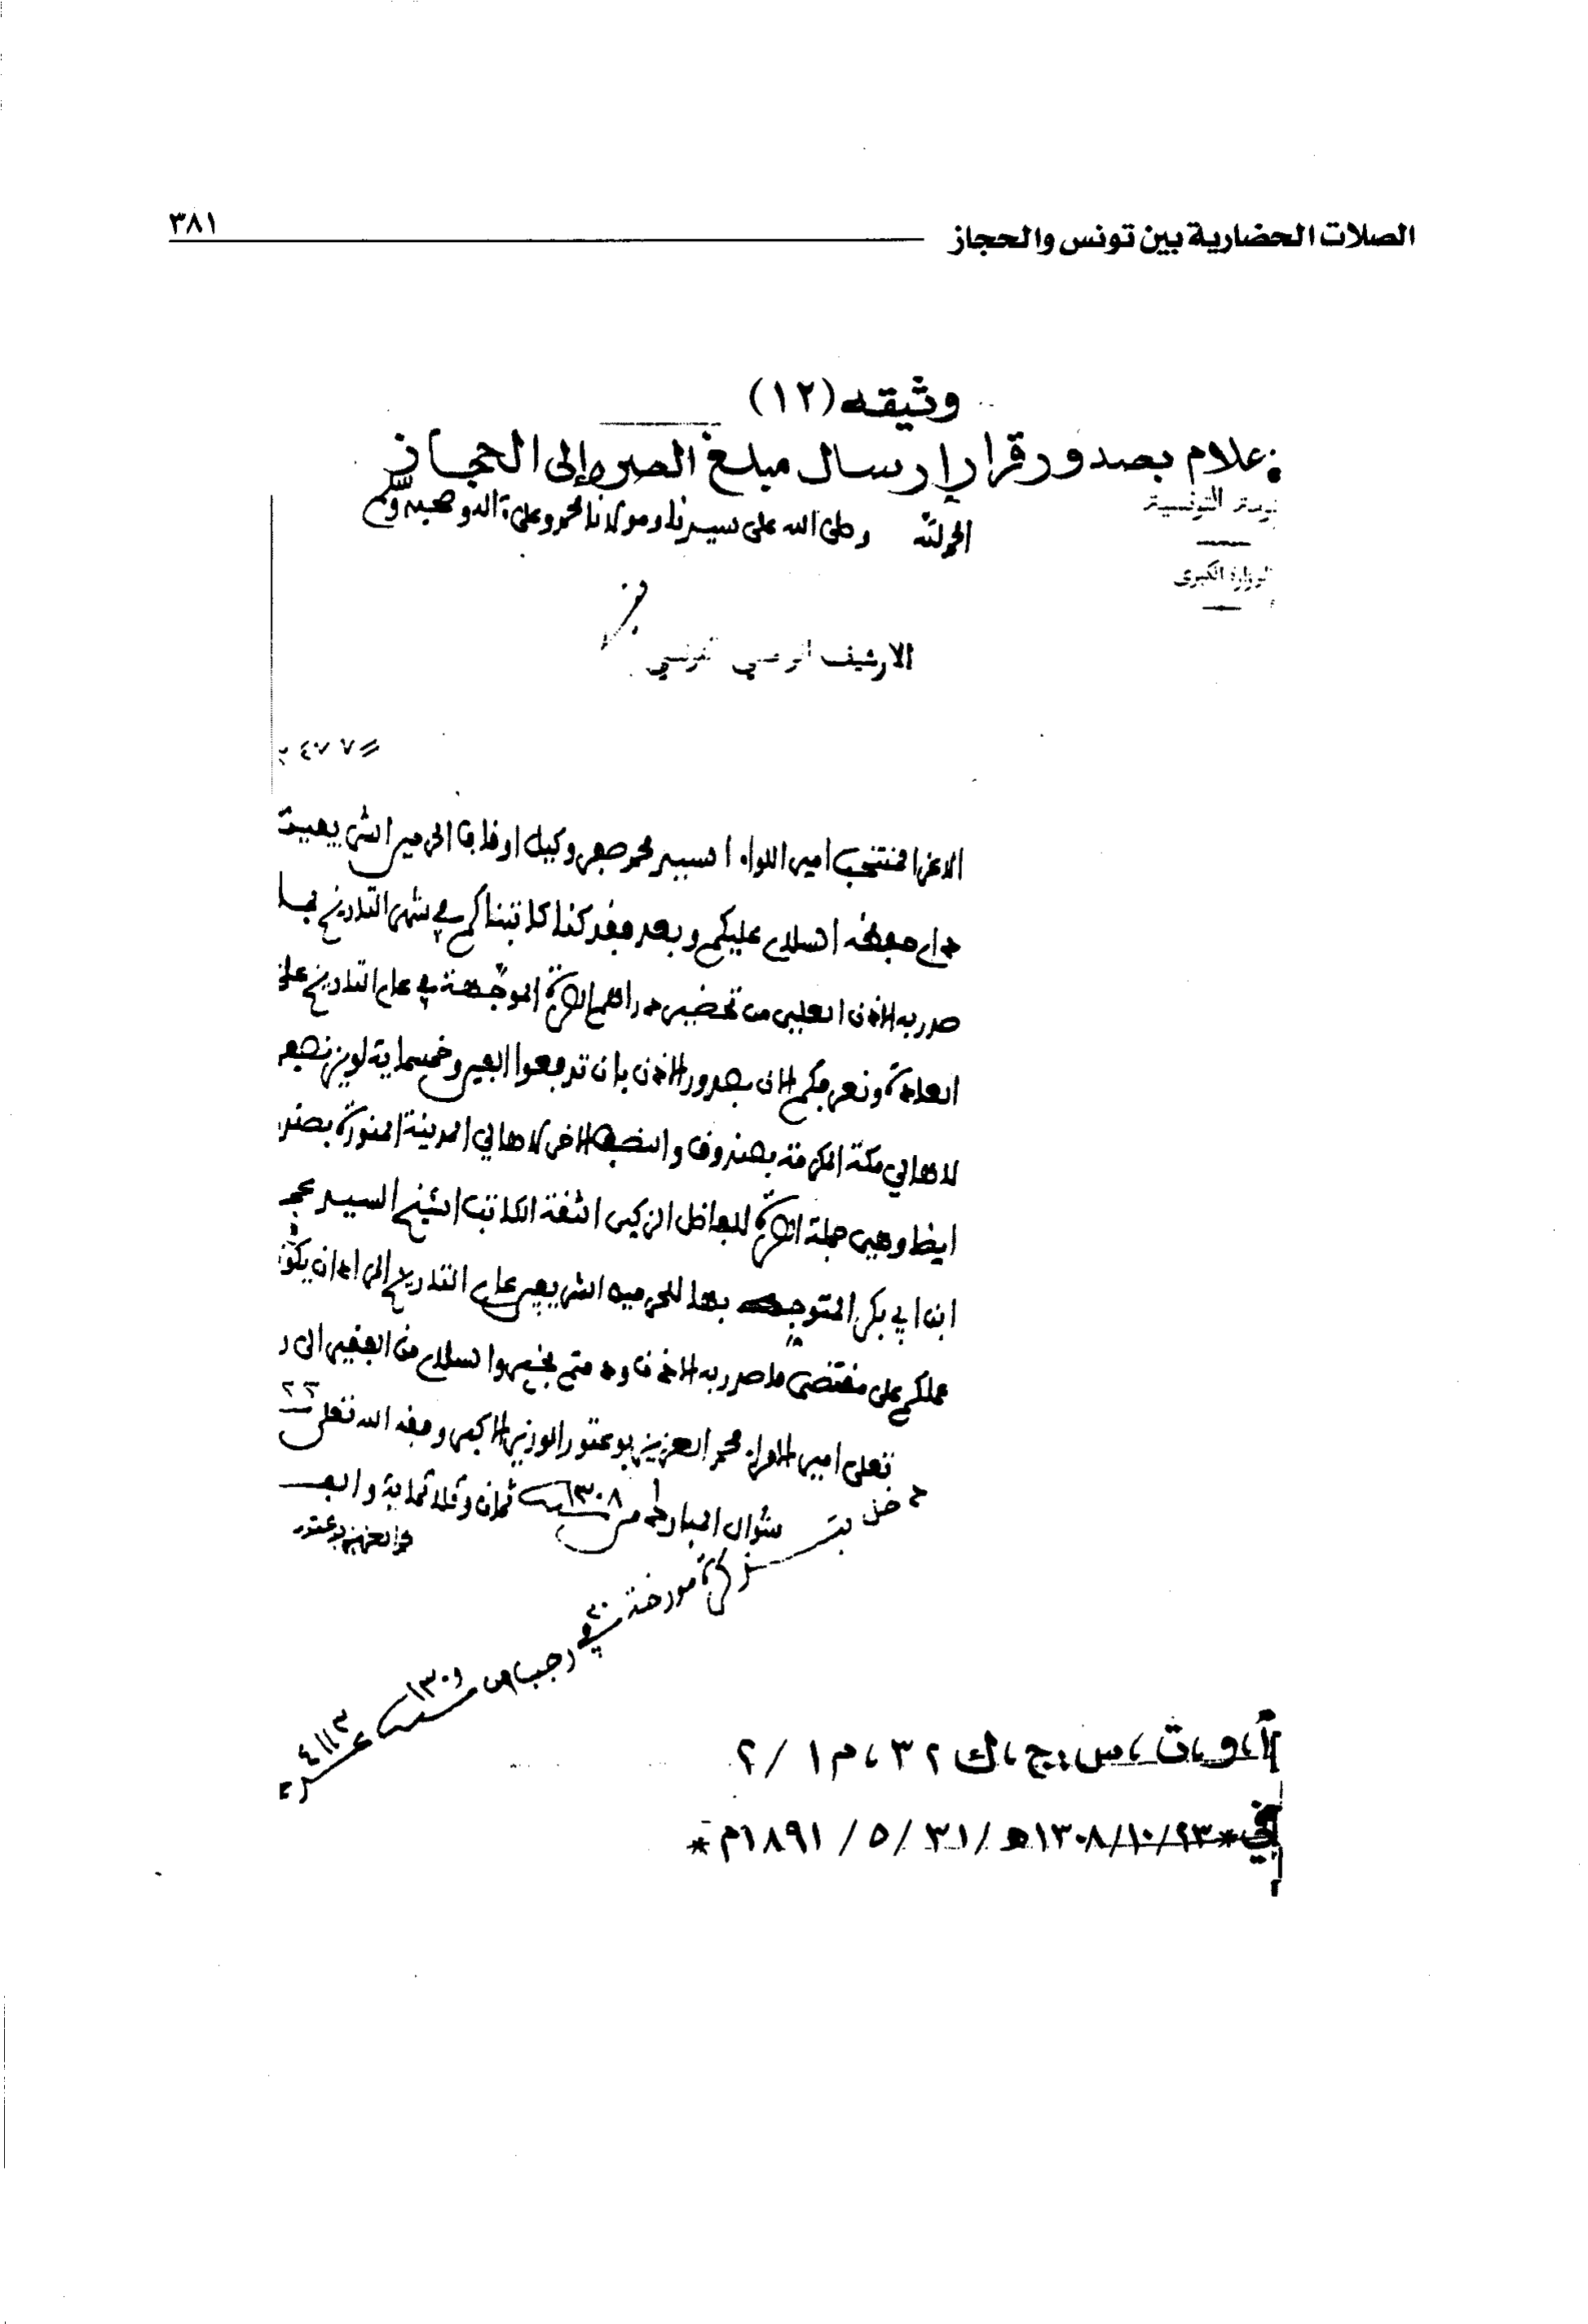 الصلات الحضارية بين تونس والحجاز ٣٨١
وثيقه (١٢)
إعلام بصدور قرار إرسال مبلغ الصره إلى الحجاز
التونسية
الوزارة الكبرى
الحمد لله وصلى الله على سيدنا ومولانا محمد وعلى آله وصحبه وسلم
الارشيف الوطني التونسي
الاعز المنتخب امير اللواء السيد محمد وكيل اوقاف الحرمين الشريفين
دام حفظه السلام عليكم وبعد فقد كنا كاتبناكم في شهر التاريخ بما
صدر به الاذن العلي من تحضير دراهم الصرة الموجهة في عام التاريخ على
العادة ونعرفكم الان بصدور الاذن بان تدفعوا الفين وخمسماية لويز نصف
لاهالي مكة المكرمة بصندوق والنصف الاخر لاهالي المدينة المنورة بصندوق
ايضا وهي جملة الصرة للفاضل الزكي الثقة الكاتب الشيخ السيد محمد
ابن ابي بكر المتوجه بها للحرمين الشريفين عام التاريخ الى ان يكون
عملكم على مقتضى ما صدر به الاذن ودمتم بخير والسلام من الفقير الى ربه
تعلى امير الامراء محمد العزيز بوعتور الوزير الاكبر وفقه الله تعلى
شوال المبارك من سنة ١٣٠٨ ثمان وثلاثماية والف
محمد العزيز بوعتور
مورخة في
رجب من سنة ١٣٠٩
٤١١٣
أ،و،ت ،س،ج،ك ٣٢ ،م١ /٢
في *٢٣/١٠/١٣٠٨ه /٣١/ ٥/ ١٨٩١م*